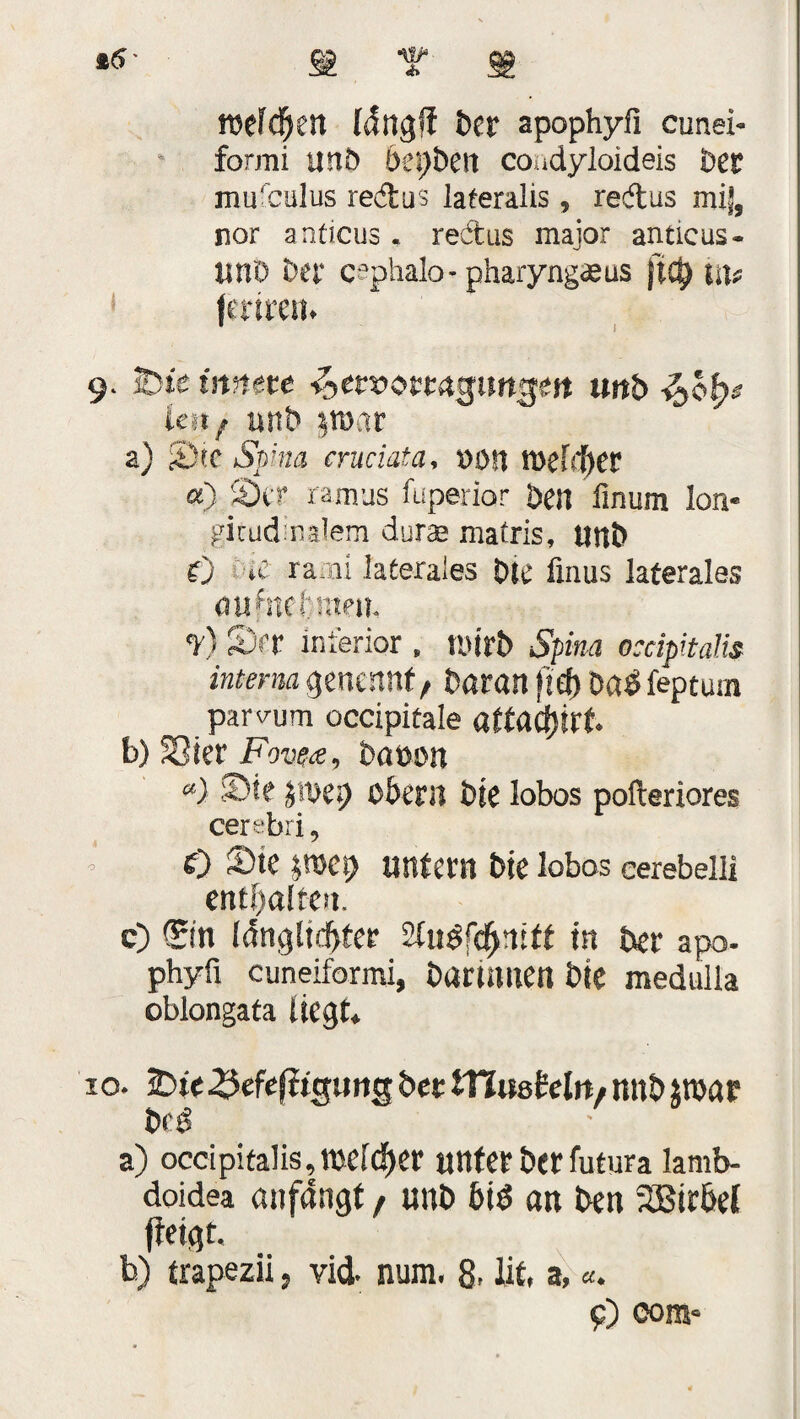 welchen längst der apophysi cunei-
formi und beyden condyloideis der
musculus rectus lateralis, rectus mi-
nor anticus. rectus major anticus-
und der cephalo-pharyngæus sich in-
seriren.
9. Die innere Hervorragungen und Höh-
len, und zwar
a) Die Spina cruciata, von welcher
α) Der ramus superior den sinum lon-
gitudinalem duræ matris, und
ϐ) die rami laterales die sinus laterales
aufnehmen.
γ) Der inferior, wird Spina occipitalis
interna genennt, daran sich das septum
parvum occipitale attachirt.
b) Vier Foveæ, davon
α) Die zwey obern die lobos posteriores
cerebri,
ϐ) Die zwey untern die lobos cerebelli
enthalten.
c) Ein länglichter Ausschnitt in der apo-
physi cuneiformi, darinnen die medulla
oblongata liegt.
10. Die Befestigung der Muskeln, nnd zwar
des
a) occipitalis, welcher unter der sutura lamb-
doidea anfängt, und bis an den Wirbel
steigt.
b) trapezii, vid. num. 8. lit. a, α.
ç) com-